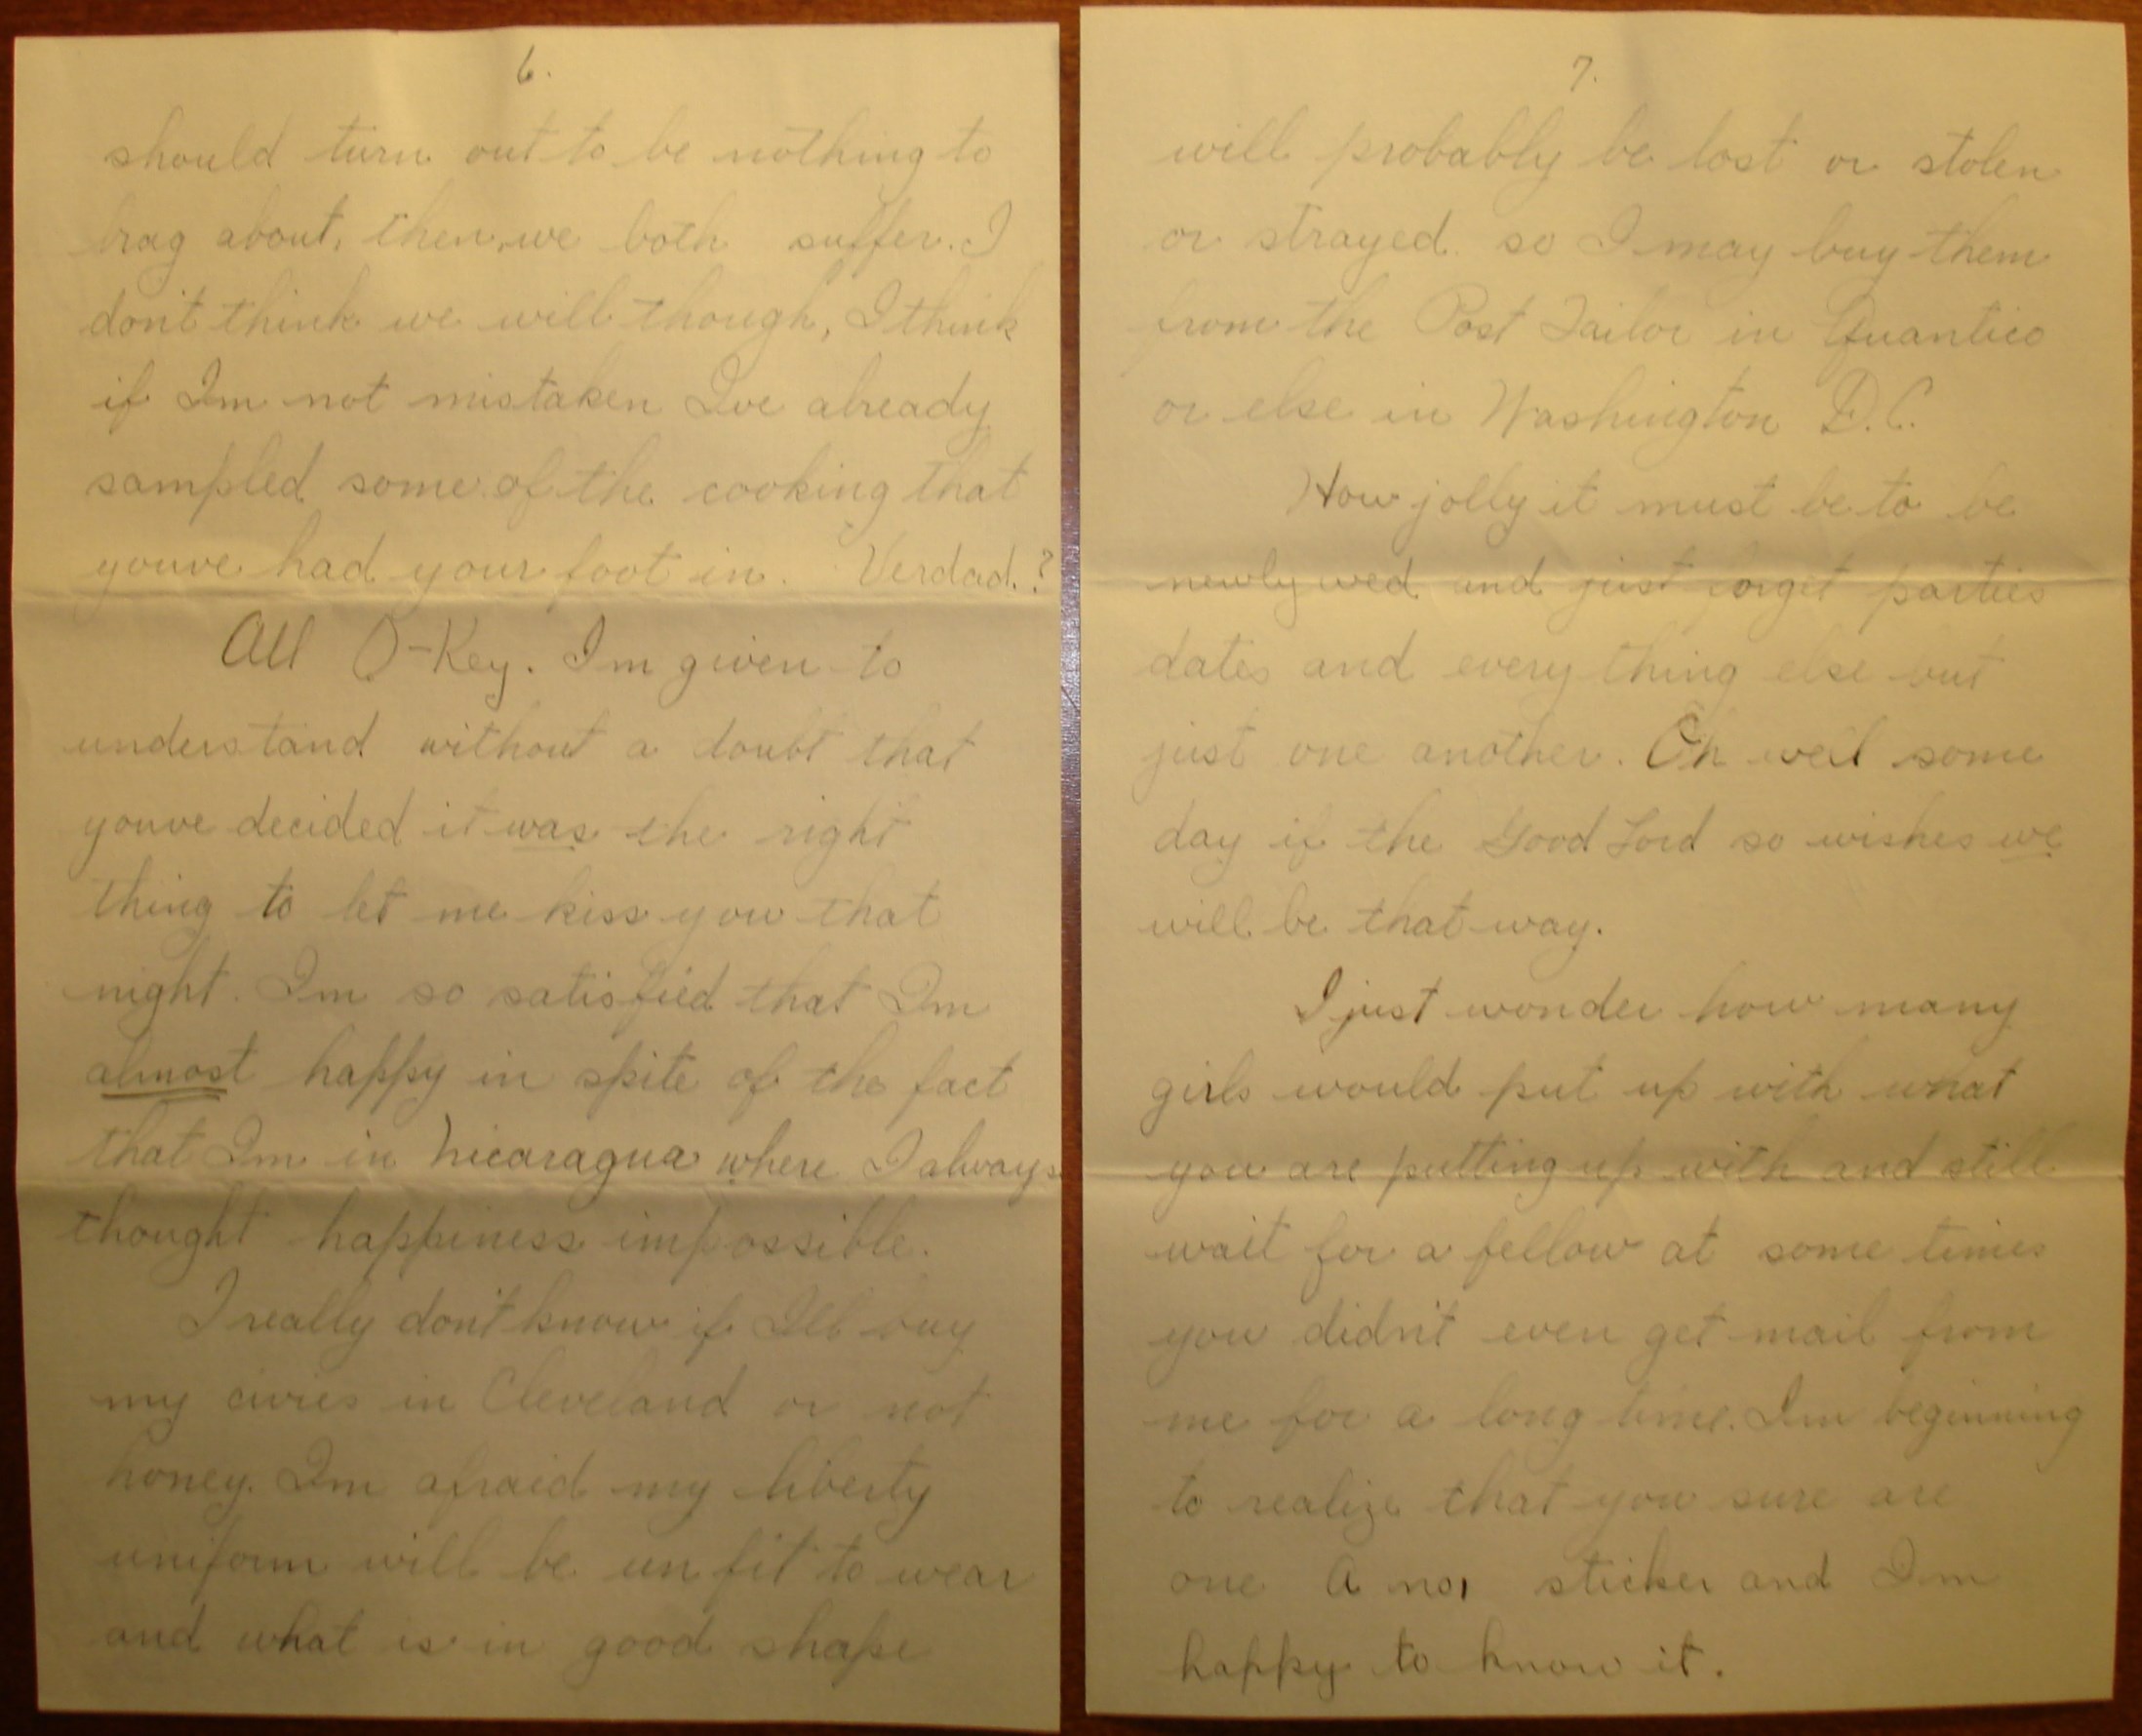 6.
should turn out to be nothing to
brag about, then, we both suffer. I
don't think we will though, I think
if Im not mistaken Ive already
sampled some of the cooking that
youve had your foot in. Verdad.?
All O-Key. Im given to
understand without a doubt that
youve decided it was the right
thing to let me kiss you that
night. Im so satisfied that Im
almost happy in spite of the fact
that Im in Nicaragua where I always
thought happiness impossible.
I really don't know if Ill buy
my civies in Cleveland or not
honey. Im afraid my liberty
uniform will be un fit to wear
and what is in good shape
7.
will probably be lost or stolen
or strayed. so I may buy them
from the Post Tailor in Quantico
or else in Washington D.C.
How jolly it must be to be
newly wed and just forget parties
dates and every thing else but
just one another. Oh well some
day if the Good Lord so wishes we
will be that way.
I just wonder how many
girls would put up with what
you are putting up with and still
wait for a fellow at some times
you didn't even get mail from
me for a long time. Im beginning
to realize that you sure are
one A no1 sticker and Im
happy to know it.